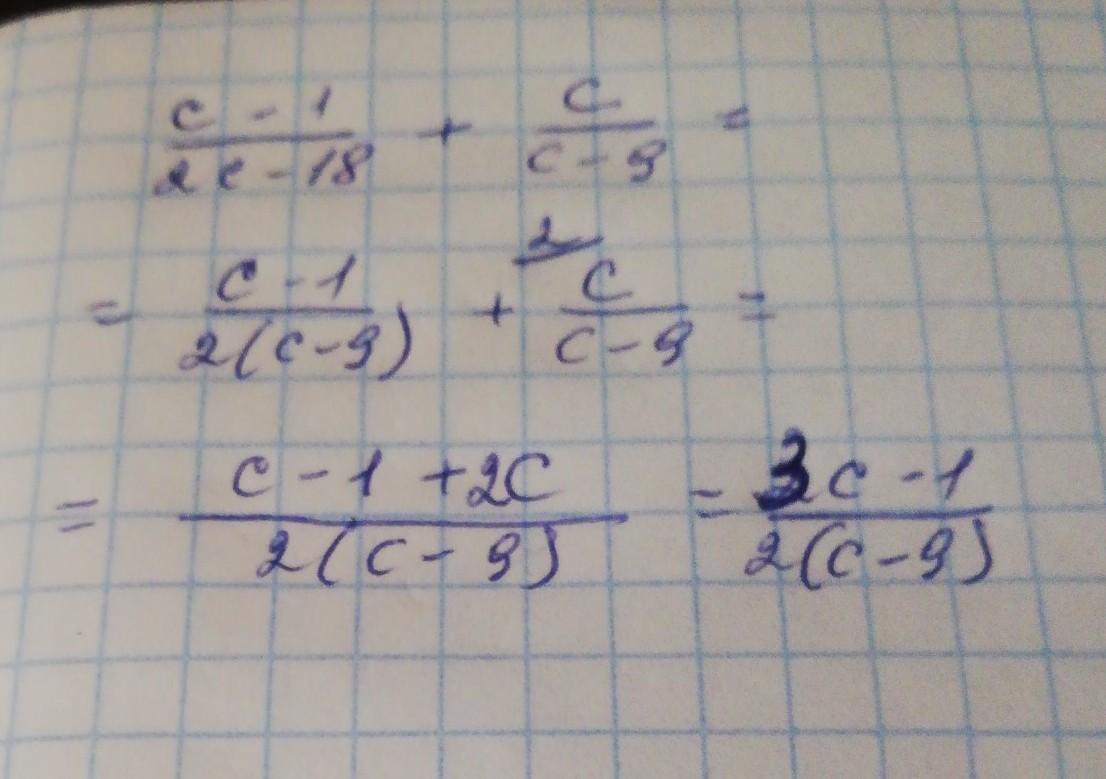 (c - 1)/(2c - 18) + c/(c - 9) =
= (c - 1)/(2(c - 9)) + 2 c/(c - 9) =
= (c - 1 + 2c)/(2(c - 9)) = (3c - 1)/(2(c - 9))